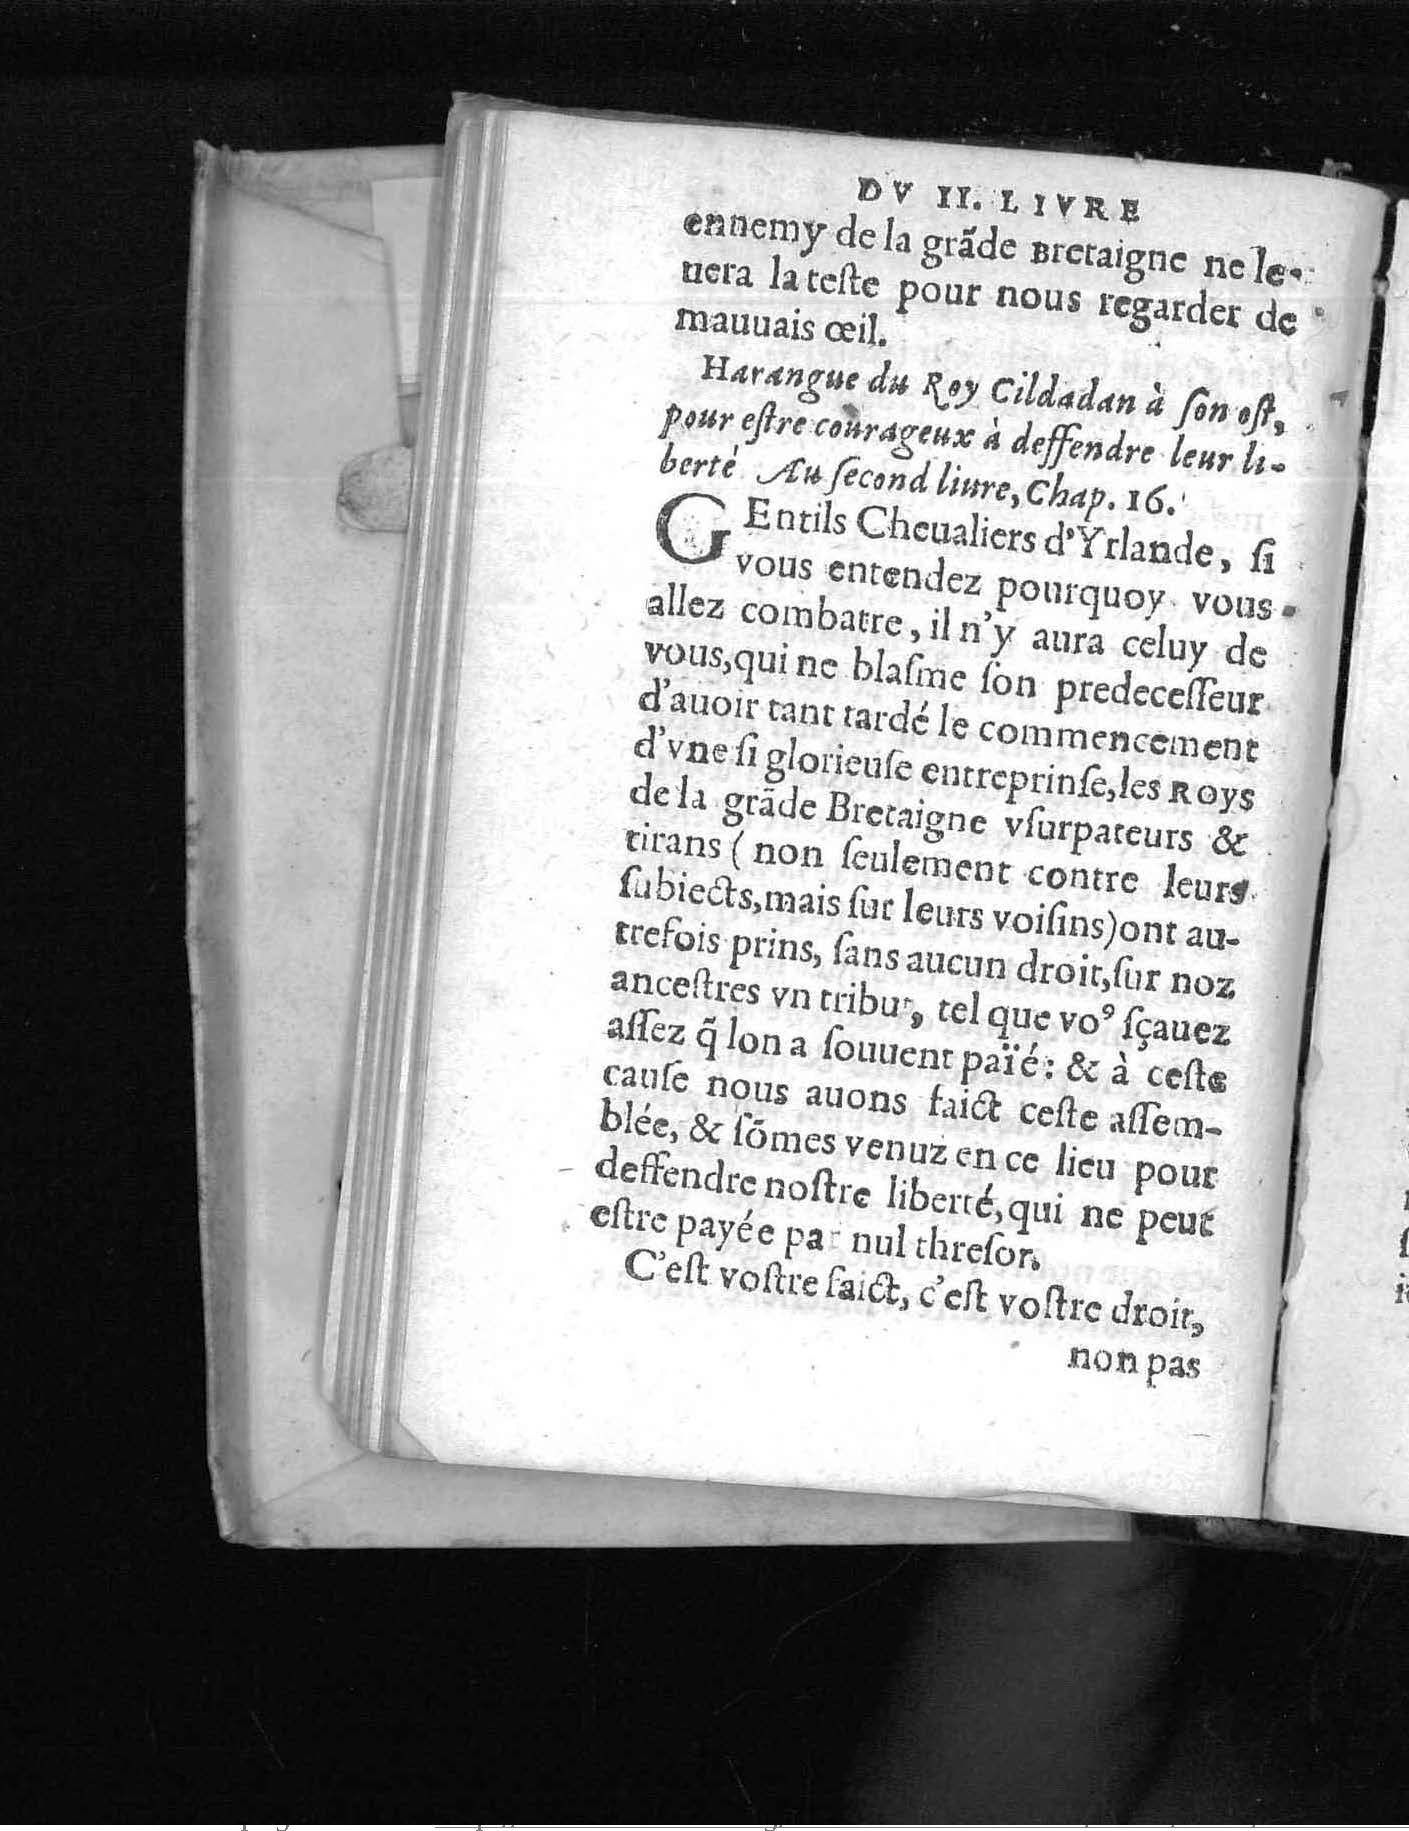 DV II. LIVRE
ennemy de la grãde Bretaigne ne le-
uera la teſte pour nous regarder de
mauuais œil.
Harangue du Roy Cildadan à ſon oſt,
pour eſtre courageux à deffendre leur li-
berté Au ſecond liure, Chap. 16.
GEntils Cheualiers d'Yrlande, ſi
vous entendez pourquoy vous
allez combatre, il n'y aura celuy de
vous, qui ne blaſme ſon predeceſſeur
d'auoir tant tardé le commencement
d'vne ſi glorieuſe entreprinſe, les Roys
de la grãde Bretaigne vſurpateurs &
tirans ( non ſeulement contre leurs
ſubiects, mais ſur leurs voiſins) ont au-
trefois prins, ſans aucun droit, ſur noz
anceſtres vn tribut, tel que vo⁹ ſçauez
aſſez q̃ lon a ſouuent païé: & à ceſte
cauſe nous auons faict ceſte aſſem-
blée, & ſõmes venuz en ce lieu pour
deffendre noſtre liberté, qui ne peut
eſtre payée par nul threſor.
C'eſt voſtre faict, c'eſt voſtre droit,
non pas